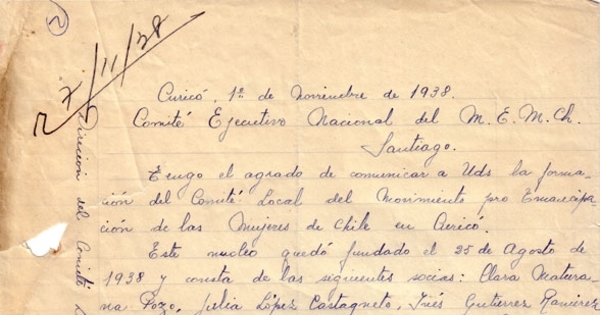 2
7/11/38
Curicó, 1º de Noviembre de 1938.
Comité Ejecutivo Nacional del M.E.M.Ch.
Santiago.
Tengo el agrado de comunicar a Uds la forma-
ción del Comité Local del Movimiento pro Emancipa-
ción de las Mujeres de Chile en Curicó.
Este nucleo quedó fundado el 25 de Agosto de
1938 y consta de las siguientes socias: Clara Matura-
na Pozo, Julia López Castagneto, Inés Gutierrez Ramírez
Direccion del Comité